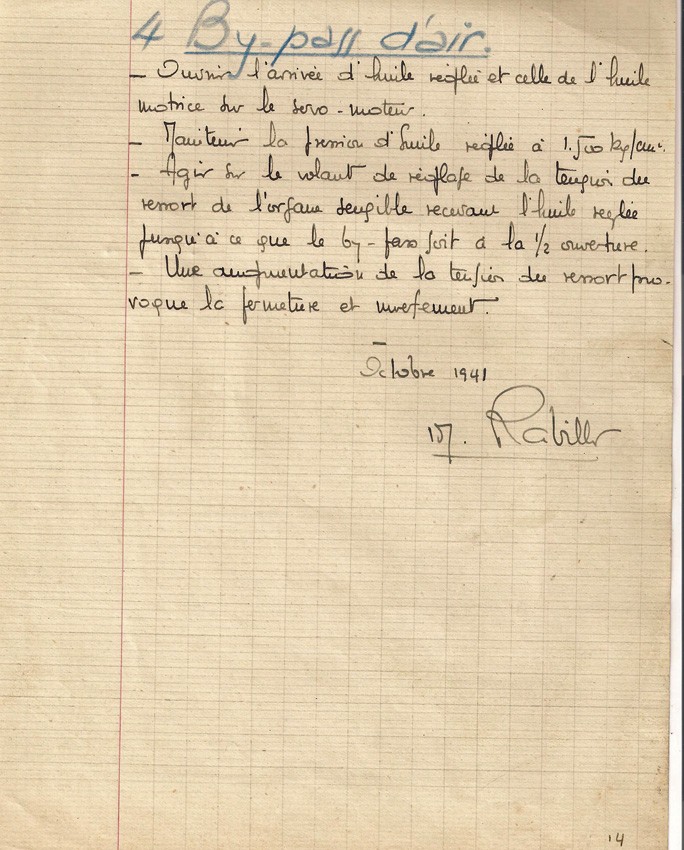 4 By-pass d'air.
- Ouvrir l'arrivée d'huile réglée et celle de l'huile
motrice sur le servo-moteur.
- Maintenir la pression d'huile réglée à 1.500 kg/cm².
- Agir sur le volant de réglage de la tension du
ressort de l'organe sensible recevant l'huile reglée
jusqu'à ce que le by-pass soit à la 1/2 ouverture.
- Une augmentation de la tension du ressort pro-
voque la fermeture et inversement.
Octobre 1941
M. Rabiller
14